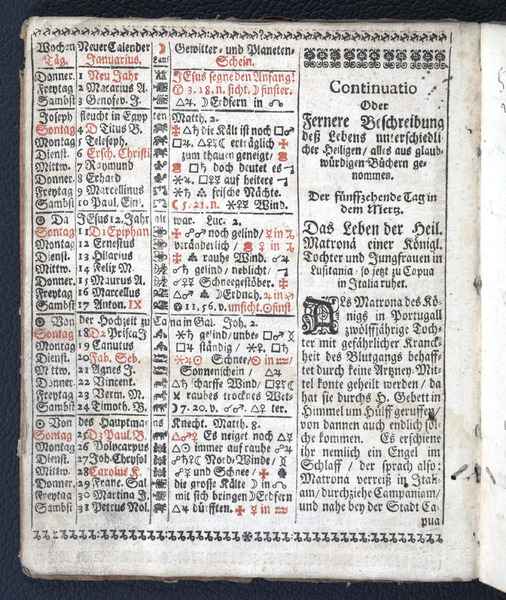 Wochen Neuer Calender Gewitter- und Planeten-
Tag. Januarius. Lauf Schein.
Donner. 1 Neu Jahr JEsus segne den Anfang!
Freytag 2 Macarius A. 3.18.n. sicht. finster.
Sambst 3 Genofev. J. Erdfern in
Joseph fleucht in Egyp ten Matth. 2.
Sontag 4 D Titus B. die Kält ist noch
Montag 5 Telesph. erträglich
Dienst. 6 Ersch. Christi zum thauen geneigt/
Mittw. 7 Raymund noch deutet es
Donner. 8 Erhard auf heitere
Freytag 9 Marcellinus frische Nächte.
Sambst 10 Paul. Einf. 5.21.n. Wind.
Da JEsus 12. Jahr alt war. Luc. 2.
Sontag 11 D1 Epiphan noch gelind/ in
Montag 12 Ernestus veränderlich/ in
Dienst. 13 Hilarius rauhe Wind.
Mittw. 14 Felix M. gelind/ neblicht/
Donner. 15 Maurus A. Schneegestöber.
Freytag 16 Marcellus Erdnah. in
Sambst 17 Anton. IX 11.56.v. unsicht. finst
Von der Hochzeit zu Cana in Gal. Joh. 2.
Sontag 18 D2 Prisca J gelind/unbe
Montag 19 Canutus ständig/
Dienst. 20 Fab. Seb. Schnee/ in
Mittw. 21 Agnes J. Sonnenschein/
Donner. 22 Vincent. scharffe Wind/
Freytag 23 Verm. M. raubes trockes Wet-
Sambst 24 Timoth. B. 7.20.v. ter.
Von des Hauptmans Knecht. Matth. 8.
Sontag 25 D3 Paul. B. Es neiget noch
Montag 26 Polycarpus immer auf rauhe
Dienst. 27 Joh. Chrysost Nord-Winde/
Mittw. 28 Carolus K. und Schnee/
Donner. 29 Franc. Sal die grosse Kälte in
Freytag 30 Martina J. mit sich bringen Erdfern
Sambst 31 Petrus Nol. dufften. in
Continuatio
Oder
Fernere Beschreibung
deß Lebens unterschiedli
cher Heiligen/ alles aus glaub-
würdigen Büchern ge-
nommen.
Der fünffzehende Tag in
dem Mertz.
Das Leben der Heil.
Matronä einer Königl.
Tochter und Jungfrauen in
Lusitania so jetzt zu Capua
in Italia ruhet.
ALs Matrona des Kö-
nigs in Portugall
zwölffjährige Toch-
ter mit gefährlicher Kranck-
heit des Blutgangs behaff-
tet durch keine Artzney-Mit-
tel konte geheilt werden/ da
hat sie durchs H. Gebett in
Himmel um Hülff geruffen/
von dannen auch endlich sol-
che kommen. Es erschiene
ihr nemlich ein Engel im
Schlaff/ der sprach also:
Matrona verreiß in Itali-
am/ durchziehe Campaniam/
und nahe bey der Stadt Ca-
pua